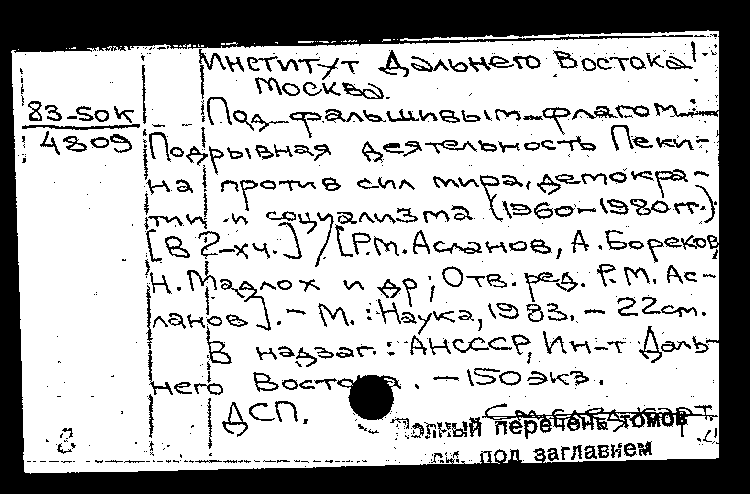 Институт Дальнего Востока.
Москва.
83-50К
4809
Под фальшивым флагом:
Подрывная деятельность Пеки-
на против сил мира, демокра-
тии и социализма (1960-1980гг.)
[В 2-х ч.] / [Р.М. Асланов, А. Бореков,
Н. Мадлох и др; Отв. ред. Р.М. Ас-
ланов]. - М.: Наука, 1983. - 22см.
В надзаг.: АНСССР, Ин-т Даль-
него Востока. - 150экз.
ДСП.
См. след. карт.
8
Полный перечень томов
см. под заглавием